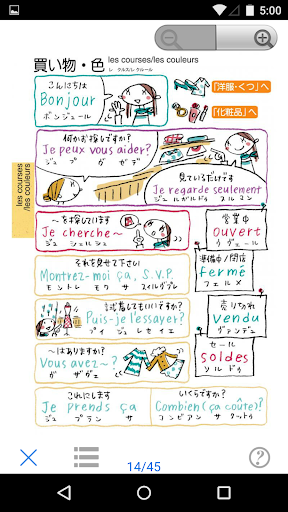 5:00
買い物・色 les courses/les couleurs
レ クルス/レ クルール
こんにちは
Bonjour
ボンジュール
「洋服・くつ」へ
「化粧品」へ
何かお探しですか?
Je peux vous aider?
ジュ プ ヴ ゼデ
les courses
/les couleurs
見ているだけです
Je regarde seulement
ジュ ルガルドゥ スルマン
〜を探しています
Je cherche〜
ジュ シェルシュ
営業中
ouvert
ウヴェール
それを見せて下さい
Montrez-moi ça, S.V.P.
モントレ モワ サ スィルヴプレ
準備中/閉店
fermé
フェルメ
試着してもいいですか?
Puis-je l'essayer?
プイ ジュ レセイエ
売り切れ
vendu
ヴァンデュ
〜はありますか?
Vous avez〜?
ヴ ザヴェ
セール
soldes
ソルドゥ
これにします
Je prends ça
ジュ プラン サ
いくらですか?
Combien(ça coûte)?
コンビアン サ クットゥ
14/45